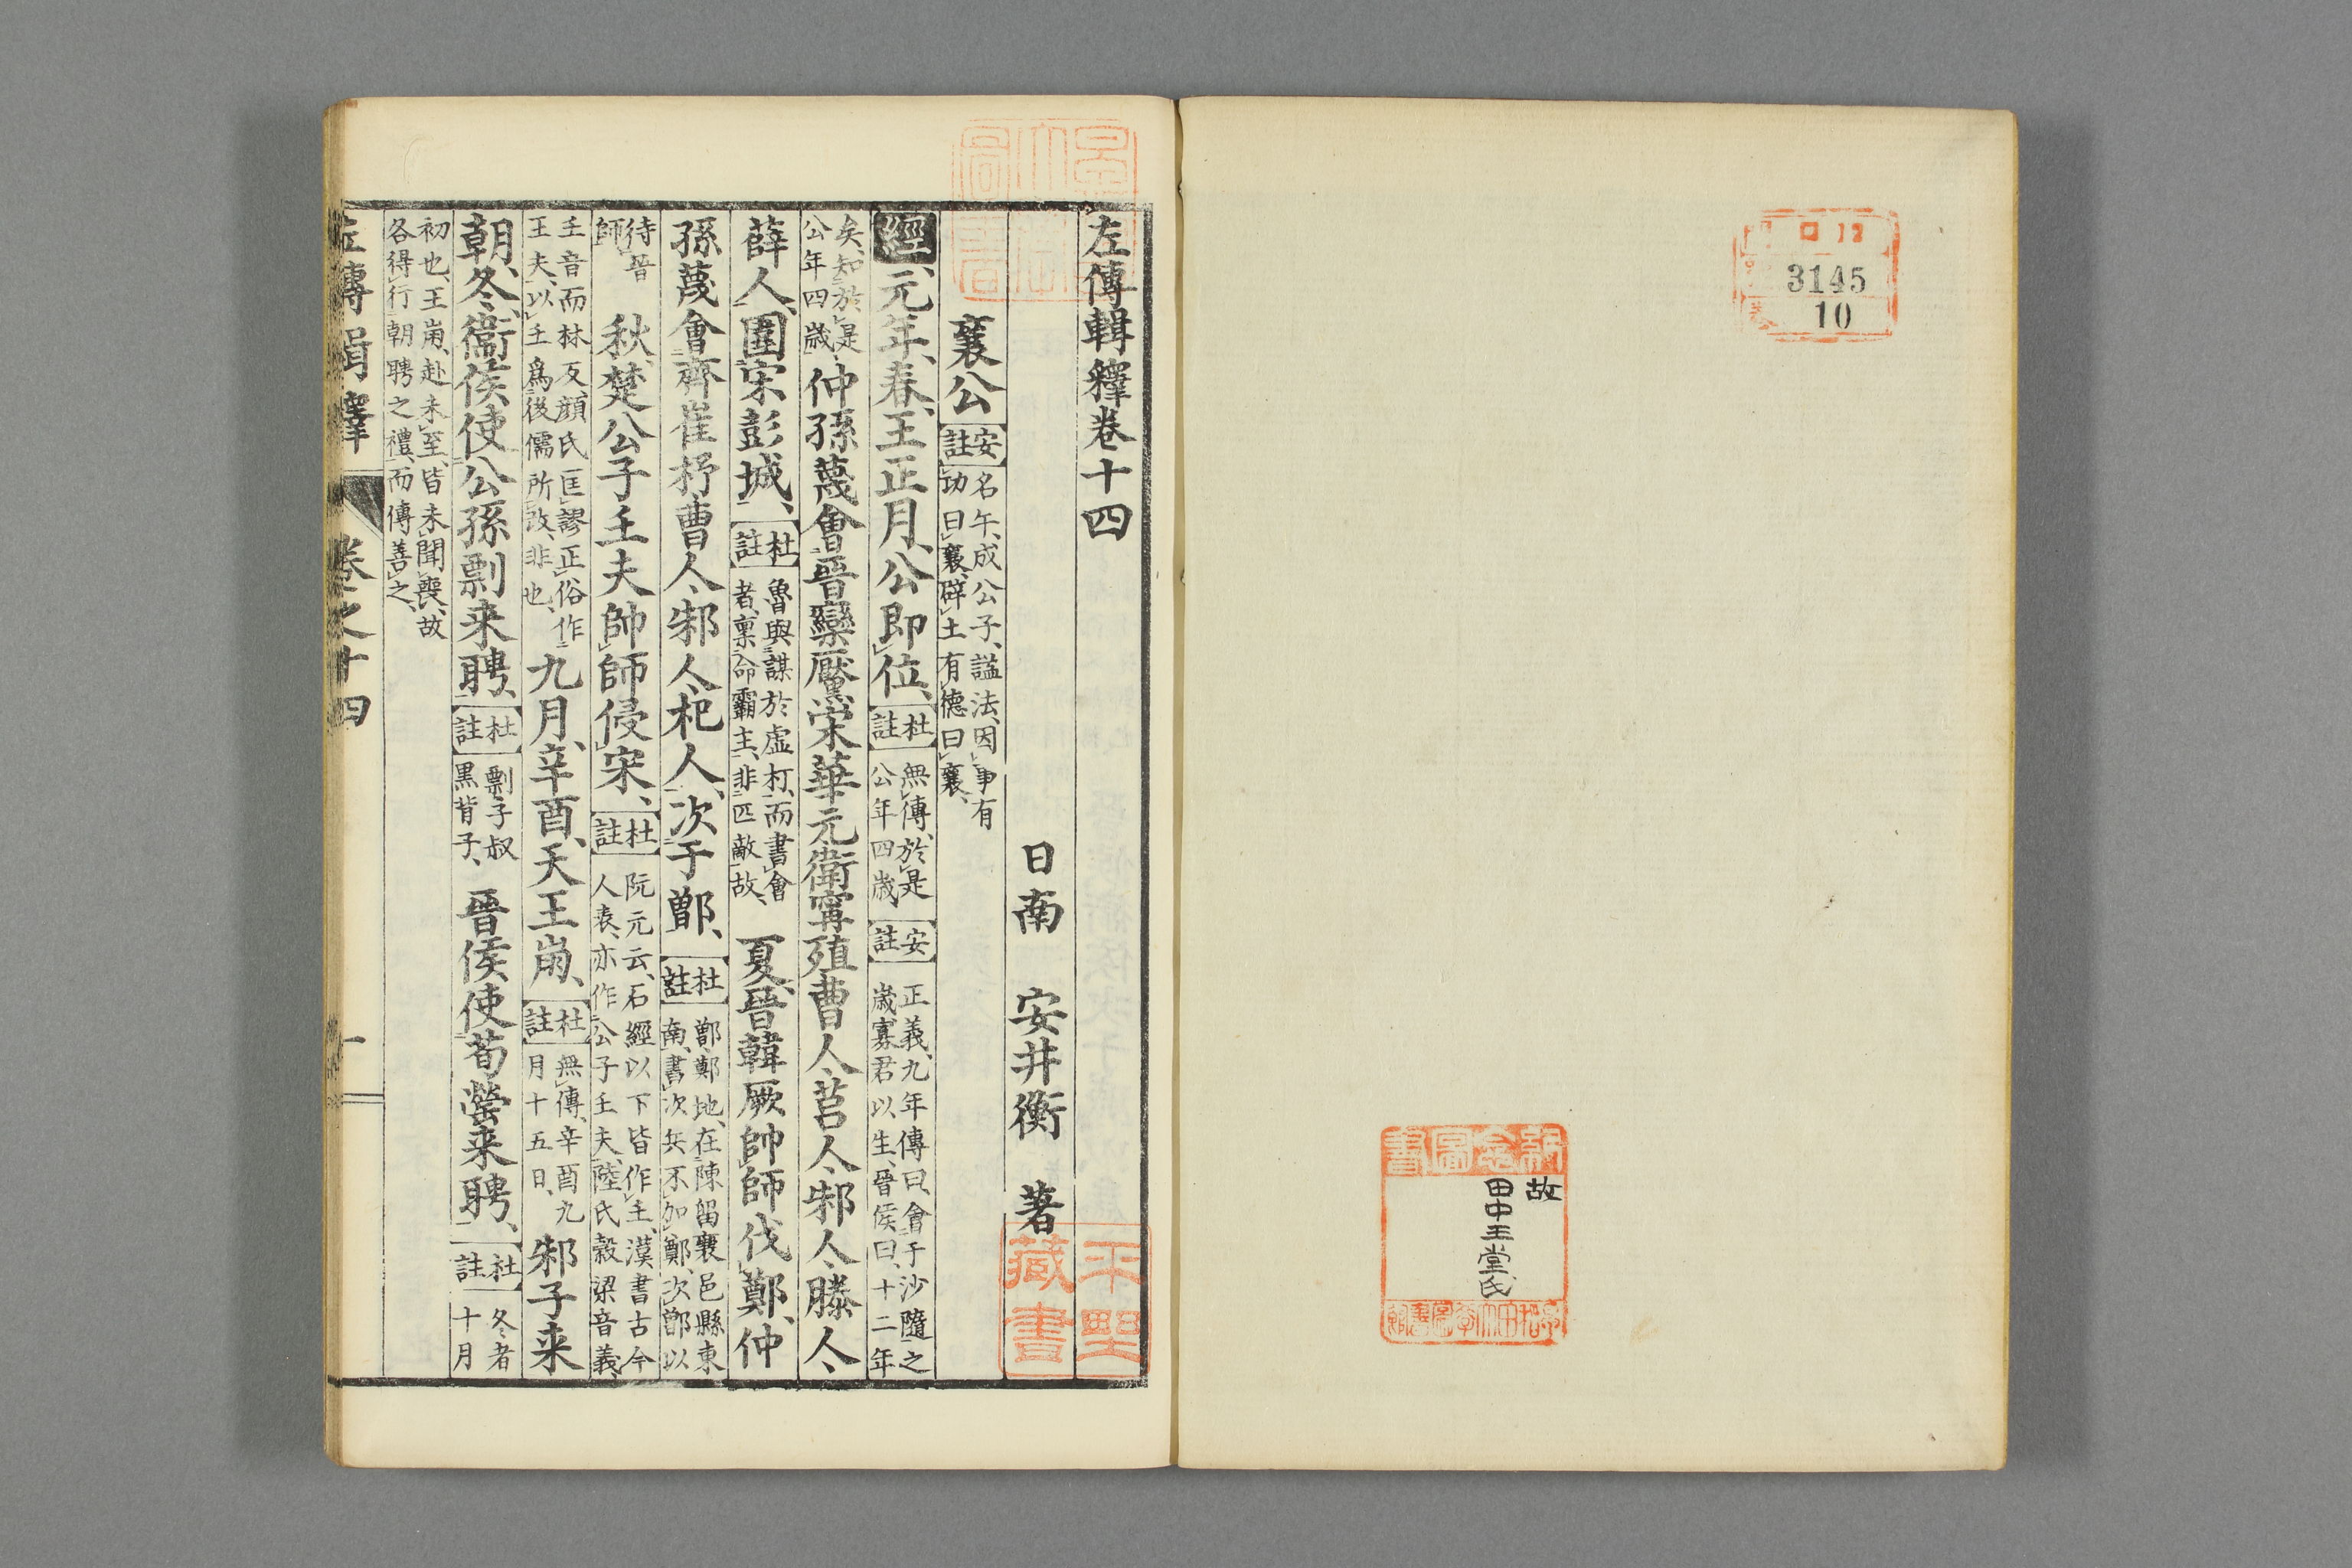 3145
10
故
田中王堂氏
左傳輯釋卷十四
日南 安井衡 著
襄公 安註 名午、成公子、謚法、因事有功曰襄、辟土有德曰襄、
經、元年、春、王正月、公即位、杜註 無傳、於是公年四歲 安註 正義、九年傳曰、會于沙隨之歲寡君以生、晉侯曰、十二年
矣、知於是公年四歲、仲孫蔑會晉欒黶宋華元衛甯殖曹人莒人邾人滕人
薛人、圍宋彭城、杜註 魯與謀於虛朾、而書會者、稟命霸主、非匹敵故、 夏、晉韓厥帥師伐鄭、仲
孫蔑會齊崔杼曹人邾人杞人、次于鄫、杜註 鄫、鄭地、在陳留襄邑縣東南、書次、兵不加鄭、次鄫以
待晉師 秋、楚公子壬夫帥師侵宋、杜註 阮元云、石經以下皆作壬、漢書古今人表、亦作公子壬夫、陸氏穀梁音義、
壬音而林反、顏氏匡謬正俗作王夫、以壬爲後儒所改、非也、 九月、辛酉、天王崩、杜註 無傳、辛酉九月十五日、 邾子来
朝、冬、衞侯使公孫剽来聘、杜註 剽子叔黑背子、 晉侯使荀罃来聘、杜註 冬者十月
初也、王崩、赴未至、皆未聞喪、故各得行朝聘之禮、而傳善之、
左傳輯釋 卷之十四 一